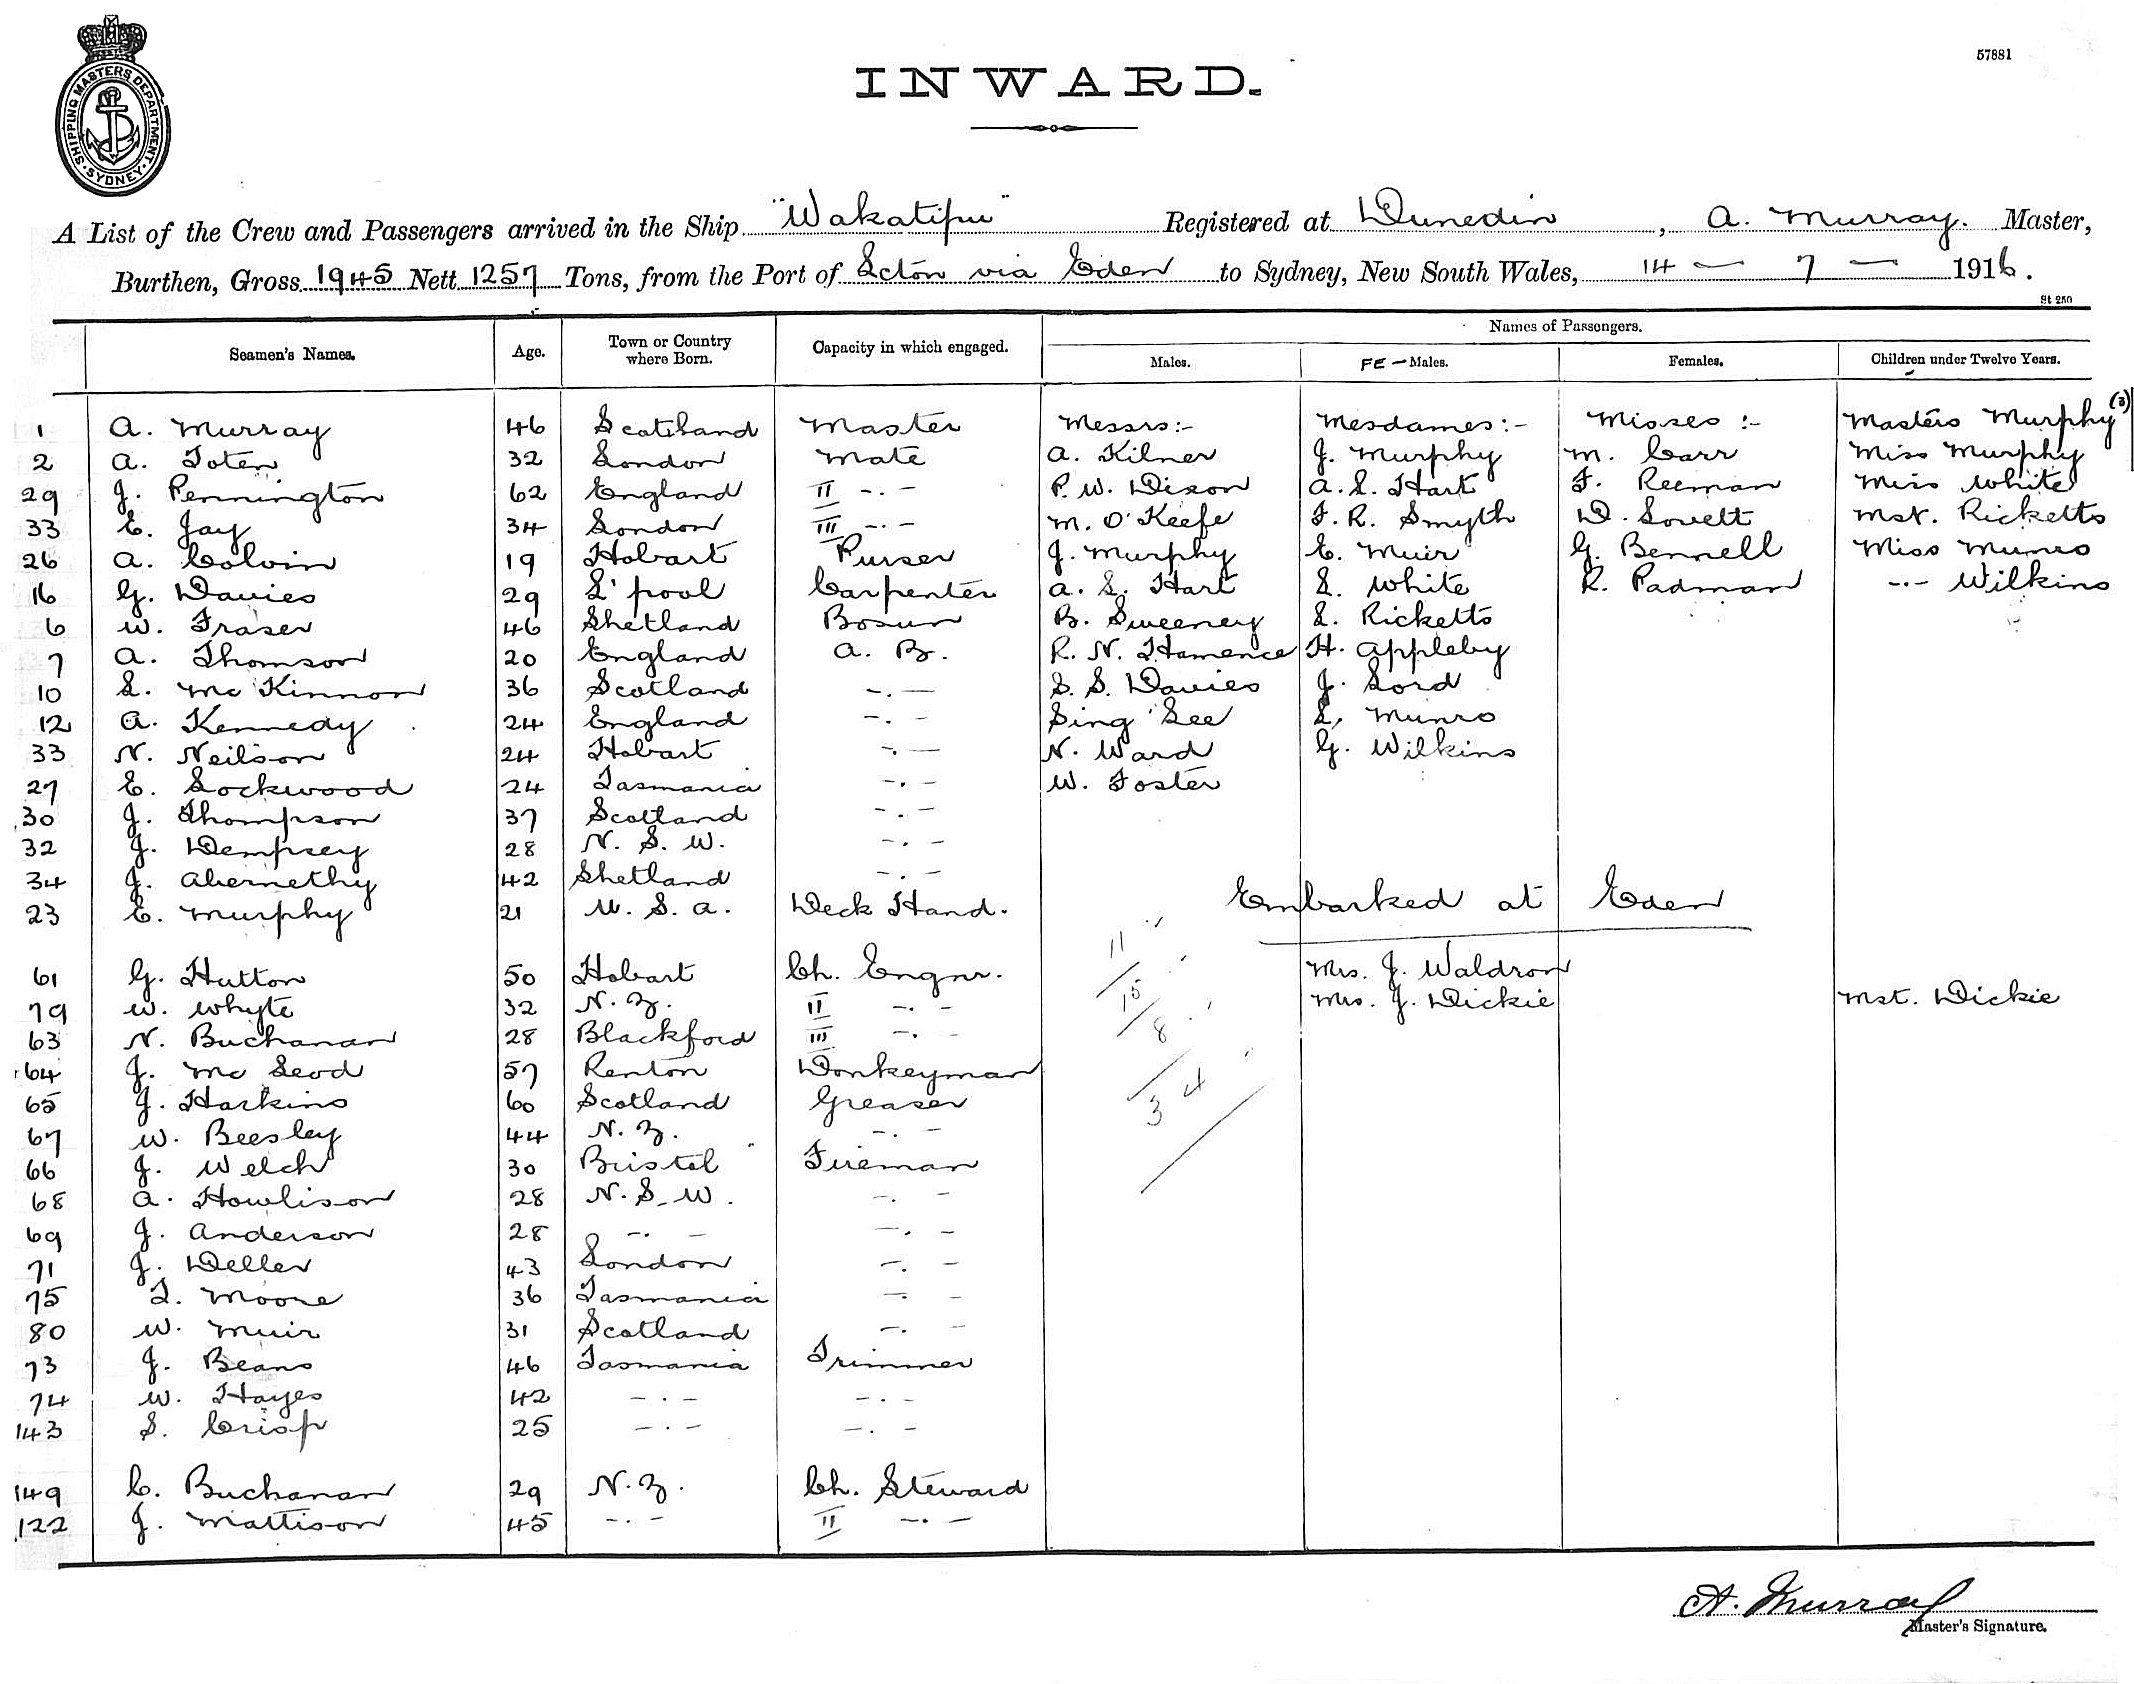 57881
INWARD.
SHIPPING MASTERS DEPARTMENT. SYDNEY
A List of the Crew and Passengers arrived in the Ship "Wakatipu" Registered at Dunedin, A. Murray. Master,
Burthen, Gross 1945 Nett 1257 Tons, from the Port of Lcton via Eden to Sydney, New South Wales, 14 — 7 — 1916.
St 250
Names of Passengers.
Seamen's Names. Age. Town or Country where Born. Capacity in which engaged. Males. FE-Males. Females. Children under Twelve Years.
1 A. Murray 46 Scotland Master Messrs:- Mesdames:- Misses:- Masters Murphy (3)
2 A. Toten 32 London Mate A. Kilner J. Murphy M. Carr Miss Murphy
29 J. Pennington 62 England II -.- P. W. Dixon A. L. Hart F. Reeman Miss White
33 E. Jay 34 London III -.- M. O'Keefe F. R. Smyth D. Lovett Mst. Ricketts
26 A. Colvin 19 Hobart Purser J. Murphy E. Muir G. Bennell Miss Munro
16 G. Davies 29 L'pool Carpenter A. L. Hart L. White R. Padman -.- Wilkins
6 W. Fraser 46 Shetland Bosun B. Sweeney L. Ricketts
7 A. Thomson 20 England A. B. R. N. Hamence H. Appleby
10 L. McKinnon 36 Scotland -.- S. S. Davies J. Lord
12 A. Kennedy 24 England -.- Sing Lee L. Munro
33 N. Neilson 24 Hobart -.- N. Ward G. Wilkins
27 E. Lockwood 24 Tasmania -.- W. Foster
30 J. Thompson 37 Scotland -.-
32 J. Dempsey 28 N. S. W. -.-
34 J. Abernethy 42 Shetland -.-
23 E. Murphy 21 U. S. A. Deck Hand.
Embarked at Eden
61 G. Hutton 50 Hobart Ch. Engnr. Mrs. J. Waldron
79 W. Whyte 32 N. Z. II -.- Mrs. J. Dickie Mst. Dickie
63 N. Buchanan 28 Blackford III -.-
64 J. McLeod 57 Renton Donkeyman
65 J. Harkins 60 Scotland Greaser
67 W. Beesley 44 N. Z. -.-
66 J. Welch 30 Bristol Fireman
68 A. Howlison 28 N. S. W. -.-
69 J. Anderson 28 -.- -.-
71 J. Deller 43 London -.-
75 T. Moore 36 Tasmania -.-
80 W. Muir 31 Scotland -.-
73 J. Beans 46 Tasmania Trimmer
74 W. Hayes 42 -.- -.-
143 S. Crisp 25 -.- -.-
149 C. Buchanan 29 N. Z. Ch. Steward
122 J. Mattison 45 -.- II -.-
11
15
8
34
A. Murray
Master's Signature.